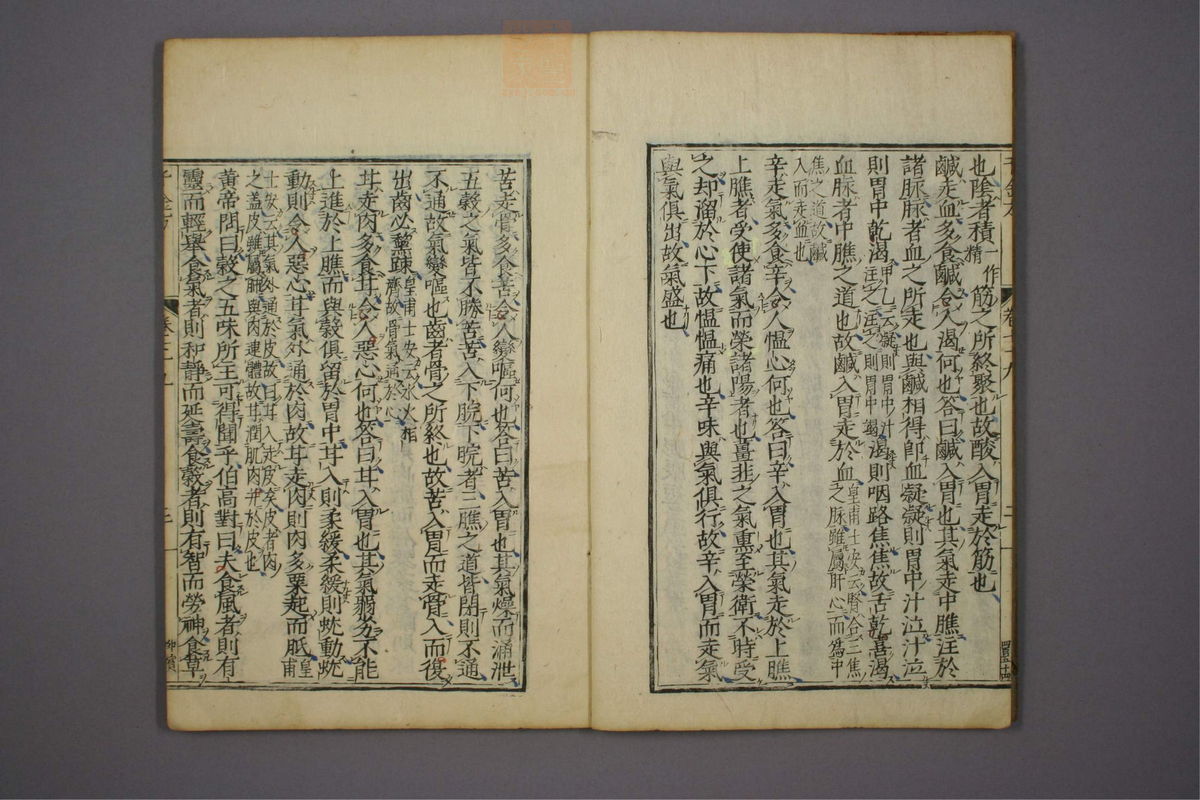 也陰者積一作精筋之所終聚也故酸入胃走於筋也
鹹走血多食鹹令人渴何也答曰鹹入胃也其氣走中膲注於
諸脉脉者血之所走也與鹹相得即血凝凝則胃中汁泣汁泣
則胃中乾渴甲乙云凝則胃中汁注之注之則胃中竭渴則咽路焦焦故舌乾喜渴
血脉者中膲之道也故鹹入胃走於血皇甫士安云腎合三焦之脉雖屬肝心而爲中
焦之道故鹹入而走血也
辛走氣多食辛令人愠心何也答曰辛入胃也其氣走於上膲
上膲者受使諸氣而榮諸陽者也薑韭之氣熏至榮衛不時受
之却溜於心下故愠愠痛也辛味與氣俱行故辛入胃而走氣
與氣俱出故氣盛也
苦走骨多食苦令人變嘔何也答曰苦入胃也其氣燥而涌泄
五穀之氣皆不勝苦苦入下脘下脘者三膲之道皆閉則不通
不通故氣變嘔也齒者骨之所終也故苦入胃而走骨入而復
出齒必黧踈皇甫士安云水火相濟故骨氣通於心
甘走肉多食甘令人惡心何也答曰甘入胃也其氣弱劣不能
上進於上膲而與穀俱留於胃中甘入則柔緩柔緩則蚘動蚘
動則令人惡心甘氣外通於肉故甘走肉則肉多粟起而胝皇甫
士安云其氣外通於皮故曰甘入走皮矣皮者肉之蓋皮雖屬肺與肉連體故甘潤肌肉并於皮也
黄帝問曰穀之五味所主可得聞乎伯高對曰夫食風者則有
靈而輕舉食氣者則和靜而延壽食穀者則有智而勞神食草